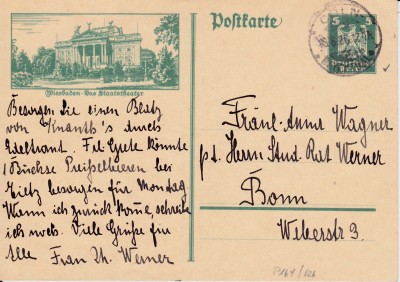 Postkarte
CÖLN
5
Deutsches Reich
Wiesbaden - Das Staatstheater
Besorgen Sie einen Blitz
von Knauth's durch
Edeltraut. Frl Grete könnte
1 Büchse Preißelbeeren bei
Tietz besorgen für Montag
Wann ich zurück kome, schreibe
ich noch. Viele Grüße für
Alle Frau Th. Werner
Fräul. Anne Wagner
p. Herrn Stud. Rat Werner
Bonn
Weberstr 3.